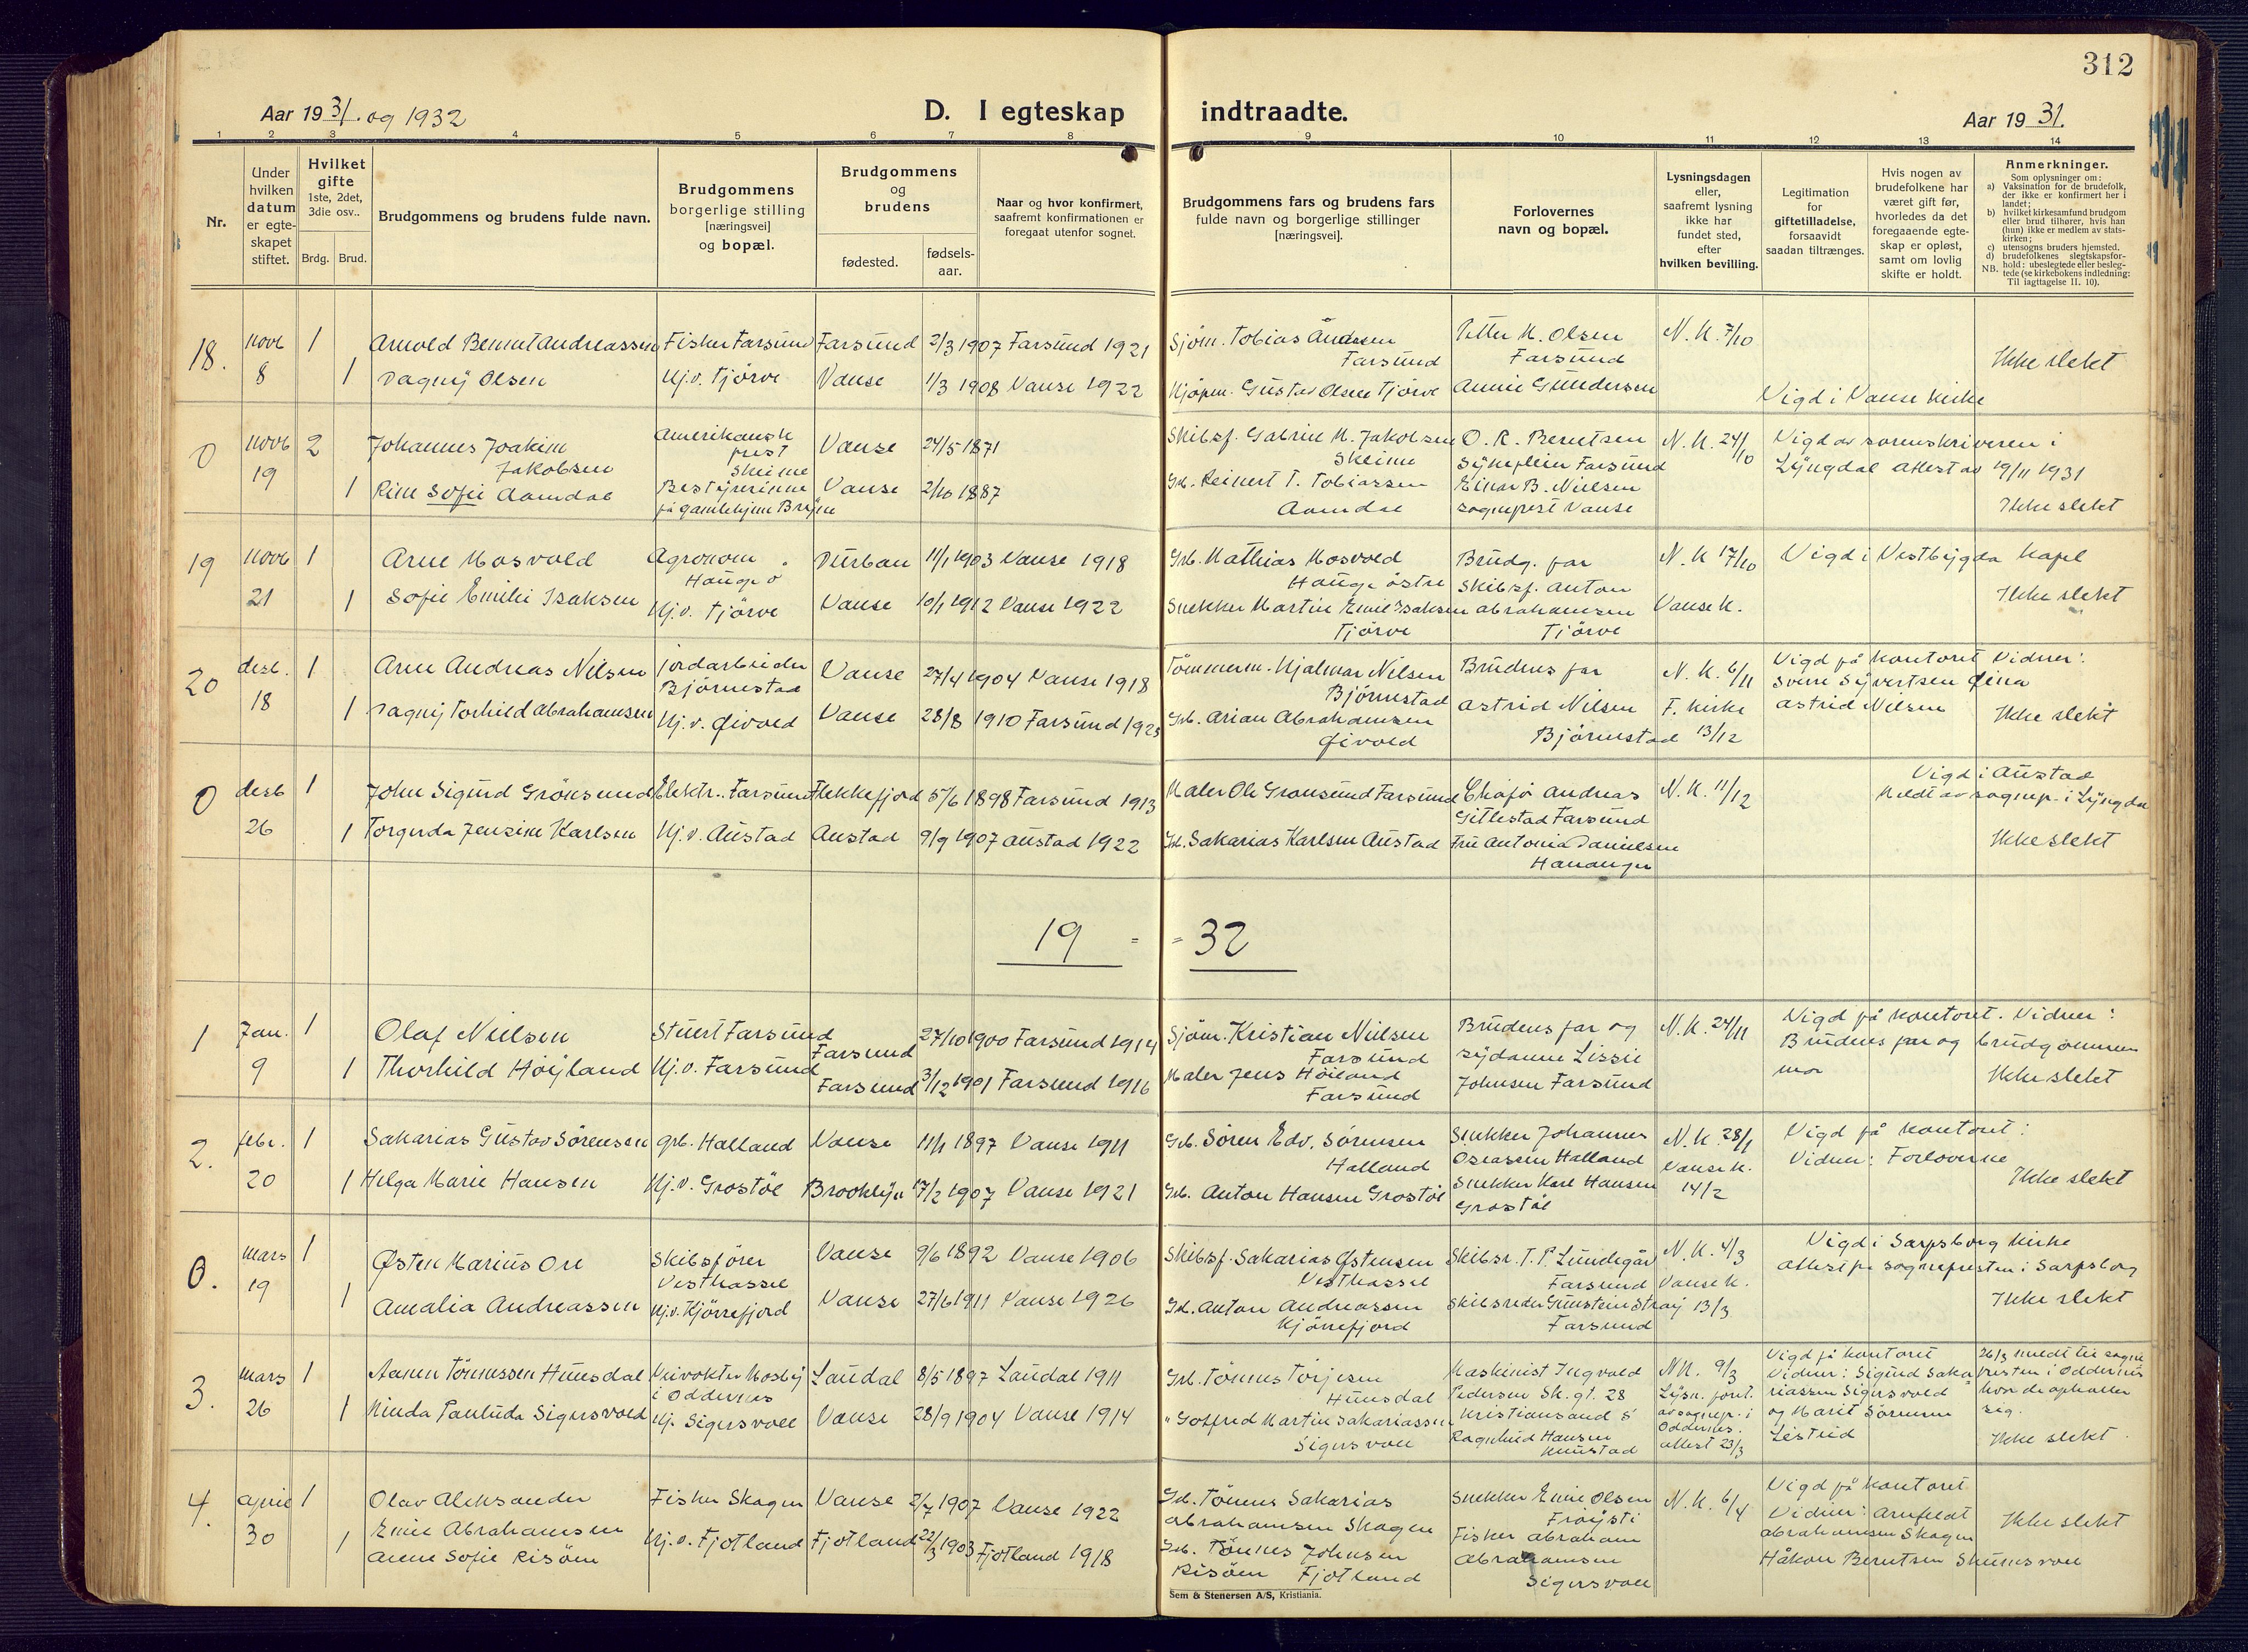 312
Aar 1931. og 1932
D. I egteskap indtraadte.
Aar 1931.
1 2 3 4 5 6 7 8 9 10 11 12 13 14
Nr.
Under hvilken datum er egteskapet stiftet.
Hvilket gifte
1ste, 2det, 3die osv..
Brdg. Brud.
Brudgommens og brudens fulde navn.
Brudgommens borgerlige stilling [næringsvei] og bopæl.
Brudgommens og brudens
fødested.
fødsels-aar.
Naar og hvor konfirmert, saafremt konfirmationen er foregaat utenfor sognet.
Brudgommens fars og brudens fars fulde navn og borgerlige stillinger [næringsvei].
Forlovernes navn og bopæl.
Lysningsdagen eller, saafremt lysning ikke har fundet sted, efter hvilken bevilling.
Legitimation for giftetilladelse, forsaavidt saadan tiltrænges.
Hvis nogen av brudefolkene har været gift før, hvorledes da det foregaaende egteskap er opløst, samt om lovlig skifte er holdt.
Anmerkninger.
Som oplysninger om:
a) Vaksination for de brudefolk, der ikke er konfirmert her i landet;
b) hvilket kirkesamfund brudgom eller brud tilhører, hvis han (hun) ikke er medlem av statskirken;
c) utensogns bruders hjemsted.
d) brudefolkenes slegtskapsforhold: ubeslegtede eller beslegtede (se kirkebokens indledning: Til iagttagelse II. 10).
NB.
18. novb 8 1 Arnold Bernt Andreassen Fisker Farsund Farsund 2/3 1907 Farsund 1921 Sjöm. Tobias Andersen Farsund Petter M. Olsen Farsund N. K. 7/10
1 Dagny Olsen Hj.v. Tjörve Vanse 1/3 1908 Vanse 1922 Kjöpm. Gustav Olsen Tjörve Annie Gundersen Vigd i Vanse kirke Ikke slekt
0 novb 19 2 Johannes Joakim Jakobsen Amerikansk prest Skeime Vanse 24/5 1871 Skibsf. Gabriel M. Jakobsen Skeime O. R. Berntsen Sykepleier Farsund N. K. 24/10 Vigd av sorenskriveren i Lyngdal attest av 19/11 1931
1 Rine Sofie Aamdal Bestyrerinne på gamlehjem Bryne Vanse 2/10 1887 Grb. Reinert T. Tobiassen Aamdal Einar B. Nielsen sogneprest Vanse Ikke slekt
19 novb 21 1 Arne Mosvold Agronom Hauge ö Durban 11/1 1903 Vanse 1918 Grb. Mathias Mosvold Hauge östre Brudg. far N. K 17/10 Vigd i Vestbygda Kapel
1 Sofie Emilie Isaksen Hj.v. Tjörve Vanse 10/1 1912 Vanse 1922 Snekker Martin Emil Isaksen Tjörve Skibsf. Anton Abrahamsen Tjörve Vanse K. Ikke slekt
20 desb. 18 1 Arne Andreas Nilsen jordarbeider Björnestad Vanse 27/4 1904 Vanse 1918 Tömmerm. Hjalmar Nilsen Björnestad Brudens far N. K. 6/11 Vigd på kontoret Vidner: Sven Syvertsen
1 Dagny Torhild Abrahamsen Hj.v. Øivold Vanse 28/8 1910 Farsund 1925 Grb. Arian Abrahamsen Øivold Astrid Nilsen Björnestad F. Kirke 13/12 Astrid Nilsen Ikke slekt
0 desb 26 1 John Sigurd Grönsund Elektr.. Farsund Flekkefjord 5/6 1898 Farsund 1913 Maler Ole Gronsund Farsund Chafør Andreas Gitlestad Farsund N. K. 11/12 Vigd i Austad Meldt av sognep. i Lyngdal
1 Torgerda Jensine Karlsen Hj.v. Austad Austad 9/9 1907 Austad 1922 Gb. Sakarias Karlsen Austad Fru Antonia Danielsen Ikke slekt
19 = = 32
1 Jan. 9 1 Olaf Nielsen Stuert Farsund Farsund 27/10 1900 Farsund 1914 Sjöm. Kristian Nielsen Farsund Brudens far og N. K. 24/11 Vigd på kontoret. Vidner:
1 Thorhild Höyland Hj.v. Farsund Farsund 3/12 1901 Farsund 1916 Maler Jens Höiland Farsund sydame Lissie Johnsen Farsund Brudens far og brudgommens mor Ikke slekt
2. febr. 20 1 Sakarias Gustav Sörensen grb. Halland Vanse 11/1 1897 Vanse 1911 Grb. Sören Edv. Sörensen Halland Snekker Johannes Oseassen Halland N. K. 28/1 Vigd på kontoret:
1 Helga Marie Hansen Hj.v. Grostöl Brooklyn 17/2 1907 Vanse 1921 Grb. Anton Hansen Grostöl Snekker Karl Hansen Grostöl Vanse K. 14/2 Vidner: Forloverne Ikke slekt
0. mars 19 1 Østen Marius Ore Skibsförer Vesthassel Vanse 9/6 1892 Vanse 1906 Skibsf. Sakarias Østensen Vesthassel Skibsr. T. P. Lundegår Farsund N. K. 4/3 Vigd i Sarpsborg Kirke
1 Amalia Andreassen Hj.v. Kjörrefjord Vanse 27/6 1911 Vanse 1926 Gb. Anton Andreassen Kjörrefjord Skibsreder Gunstein Stray Farsund Vanse K. 13/3 attest fra sognepresten i Sarpsborg Ikke slekt
3. mars 26 1 Aanen Tönnessen Hunsdal Mosby i Oddernes Laudal 8/5 1897 Laudal 1911 Grb. Tönnes Torjesen Hunsdal Maskinist Ingvald Pedersen Sk. gt. 28 Kristiansand S N K. 9/3 Lysn. foret. av sognep. i Oddernes. attest 23/3 Vigd på kontoret Vidner: Sigurd Sakariassen Sigersvold og Marit Sörensen 26/3 meldt til sognepresten i Oddernes hvor de opholder sig.
1 Minda Paulida Sigersvold Hj. Sigersvoll Vanse 28/9 1904 Vanse 1914 " Gotfred Martin Sakariassen Sigersvoll Ragnhild Hansen Ikke slekt.
4. april 30 1 Olav Aleksander Emil Abrahamsen Fisker Skagen Vanse 2/7 1907 Vanse 1922 Gb. Tönnes Sakarias Abrahamsen Skagen Snekker Emil Olsen N. K. 6/4 Vigd på kontoret
1 Anne Sofie Risöen Hj.v. Fjotland Fjotland 22/3 1903 Fjotland 1918 Grb. Tönnes Johnsen Risöen Fjotland Fisker Abraham Abrahamsen Sigersvoll Vidner: Arnfeldt Abrahamsen Skagen Håkon Berntsen Skeimesvoll Ikke slekt
Sem & Stenersen A/S, Kristiania.